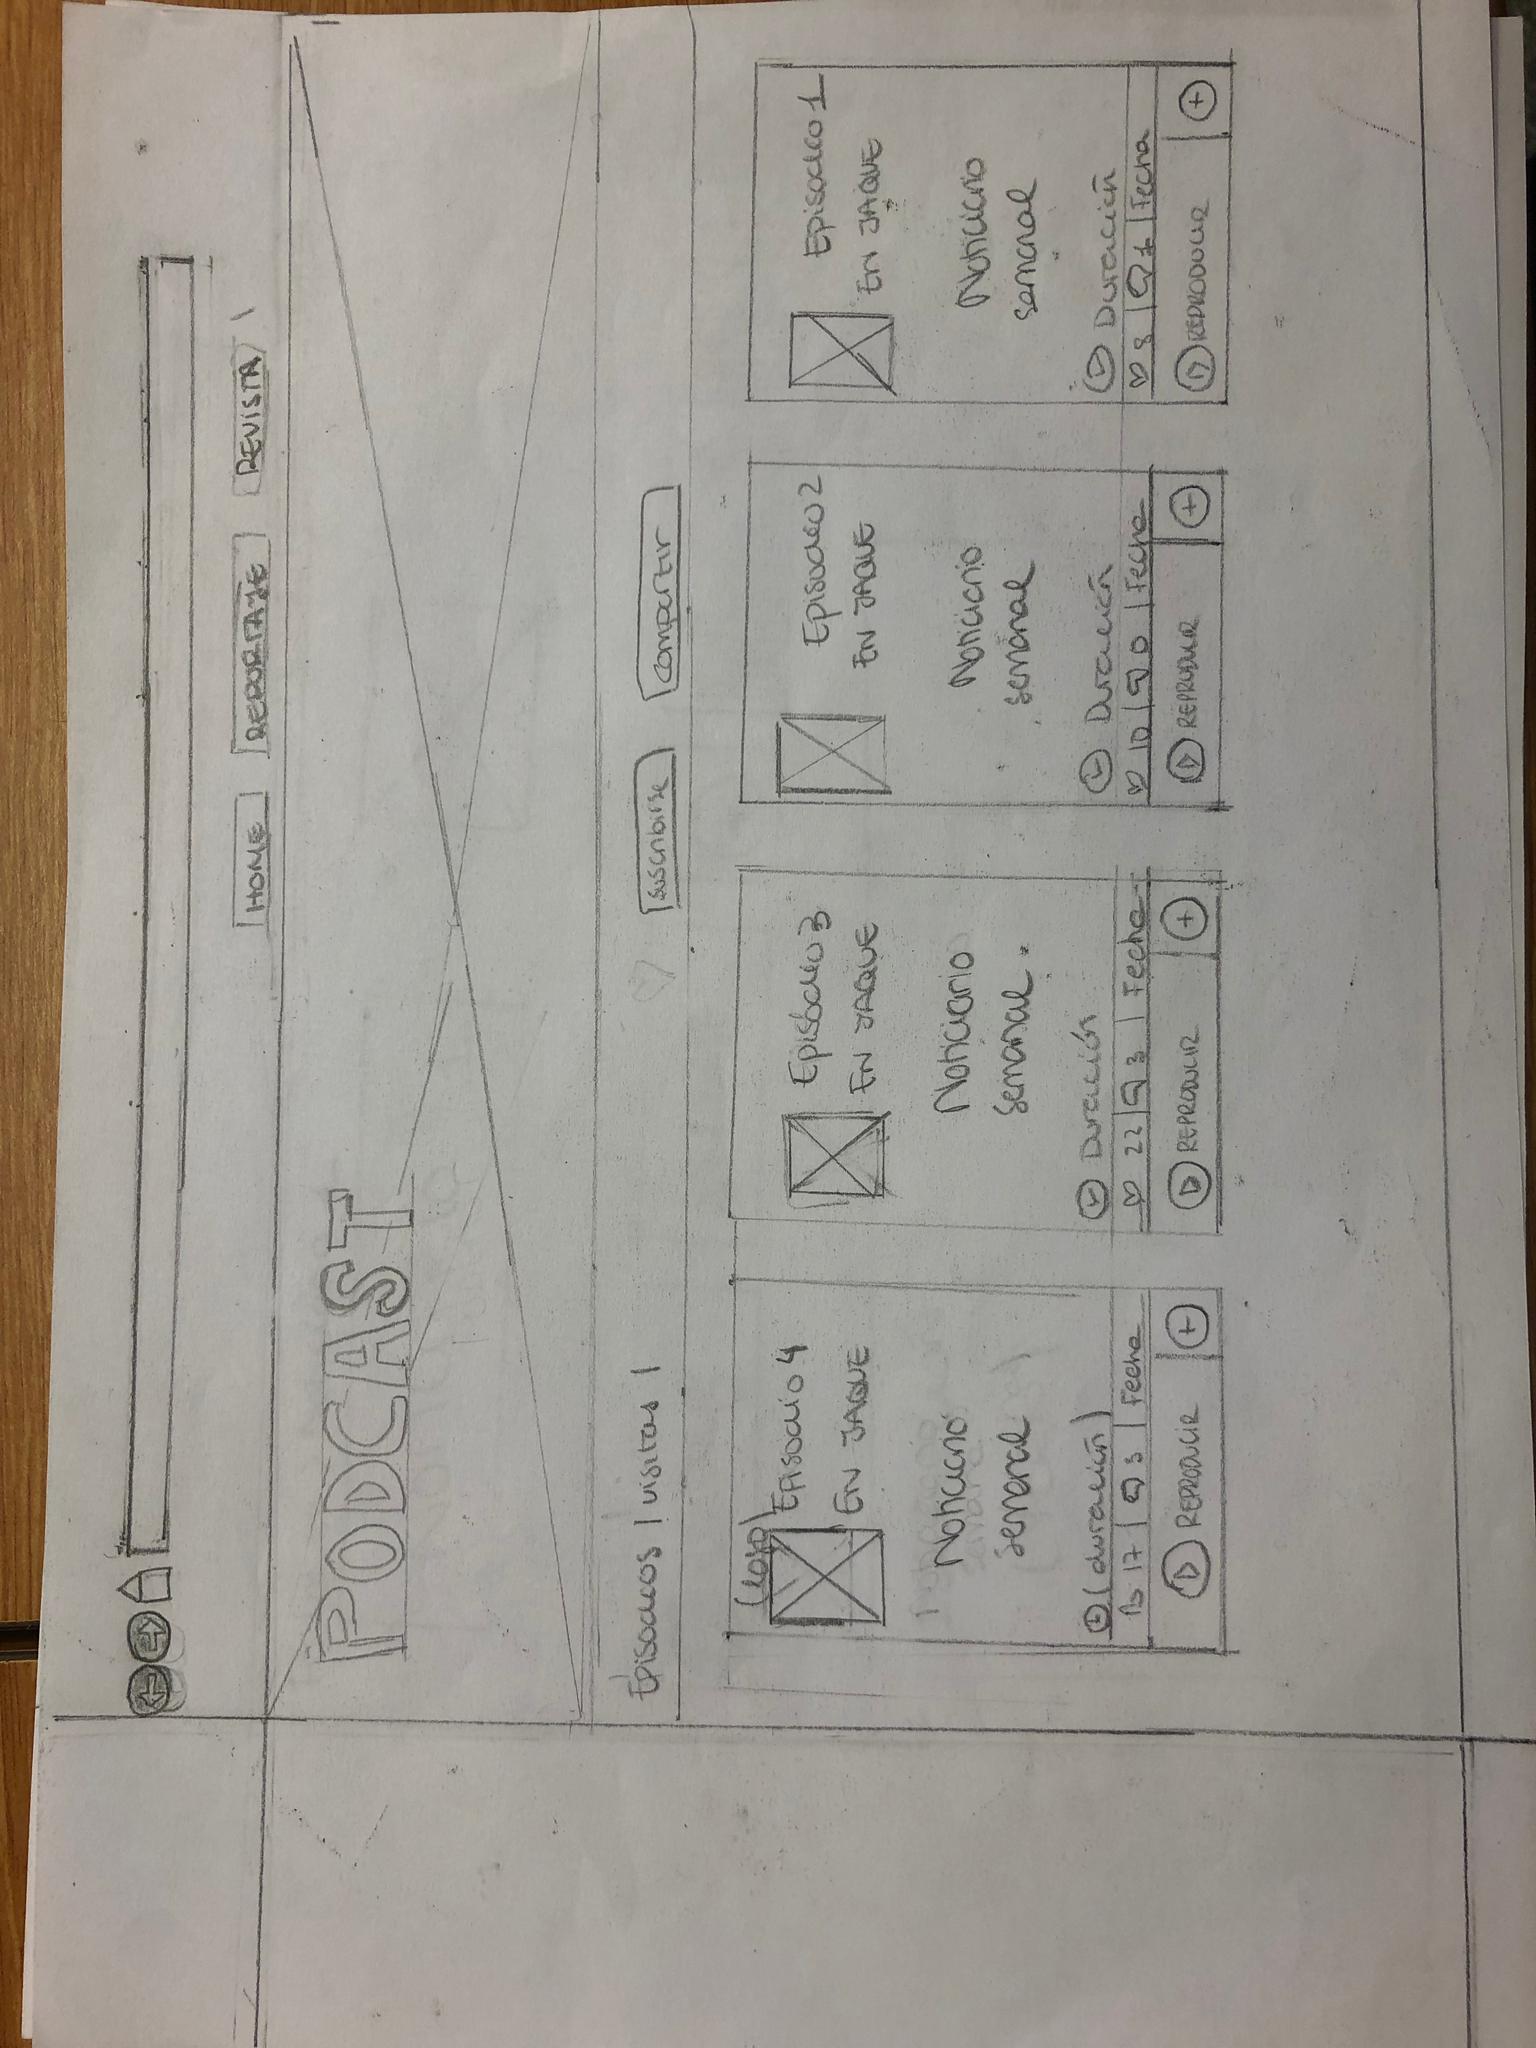 HOME REPORTAJE REVISTA
PODCAST
Episodios | visitas |
suscribirse
compartir
(logo)
Episodio 4
EN JAQUE
Noticiario
semanal
(duración)
17 | 3 | Fecha
REPRODUCIR +
Episodio 3
EN JAQUE
Noticiario
semanal.
Duración
22 | 3 | Fecha
REPRODUCIR +
Episodio 2
EN JAQUE
Noticiario
semanal
Duración
10 | 0 | Fecha
REPRODUCIR +
Episodio 1
EN JAQUE
Noticiario
semanal
Duración
8 | 1 | Fecha
REPRODUCIR +